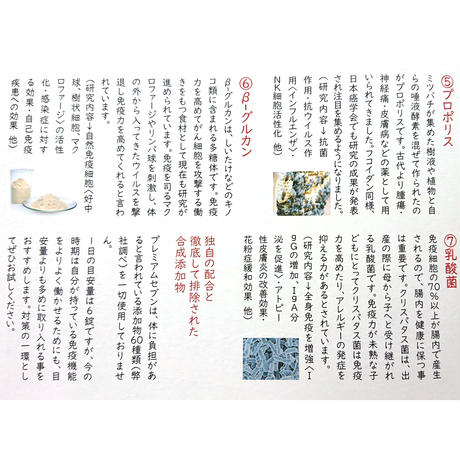 ⑤プロポリス
ミツバチが集めた樹液や植物と自
らの唾液酵素を混ぜて作られたの
がプロポリスです。古代より腫瘍、
神経痛・皮膚病などの薬として用
いられてきました。フコイダン同様、
日本癌学会でも研究の成果が発表
され注目を集めるようになりました。
(研究内容→抗菌
作用・抗ウイルス作
用(インフルエンザ)・
NK細胞活性化 他)
⑥β-グルカン
β-グルカンは、しいたけなどのキノ
コ類に含まれる多糖体です。免疫
力を高めてがん細胞を攻撃する働
きをもつ食材として現在も研究が
進められています。免疫を司るマク
ロファージやリンパ球を刺激し、体
の外から入ってきたウイルスを撃
退し免疫力を高めてくれると言わ
れています。
(研究内容→自然免疫細胞〈好中
球、樹状細胞、マク
ロファージ〉の活性
化・感染症に対す
る効果・自己免疫
疾患への効果 他)
⑦乳酸菌
免疫細胞の70%以上が腸内で産生
されるので、腸内を健康に保つ事
は重要です。クリスパタス菌は、出
産の際に母から子へと受け継がれ
る乳酸菌です。免疫力が未熟な子
どもにとってクリスパタス菌は免疫
力を高めたり、アレルギーの発症を
抑える力があるとされています。
(研究内容→全身免疫を増強〈I
gGの増加、IgA分
泌を促進〉・アトピー
性皮膚炎の改善効果・
花粉症緩和効果 他)
独自の配合と
徹底して排除された
合成添加物
プレミアムセブンは、体に負担があ
ると言われている添加物60種類(弊
社調べ)を一切使用しておりませ
ん。
1日の目安量は6錠ですが、今の
時期は自分が持っている免疫機能
をよりよく働かせるためにも、目
安量よりも多めに取り入れる事を
おすすめします。対策の一環とし
てぜひお試しください。